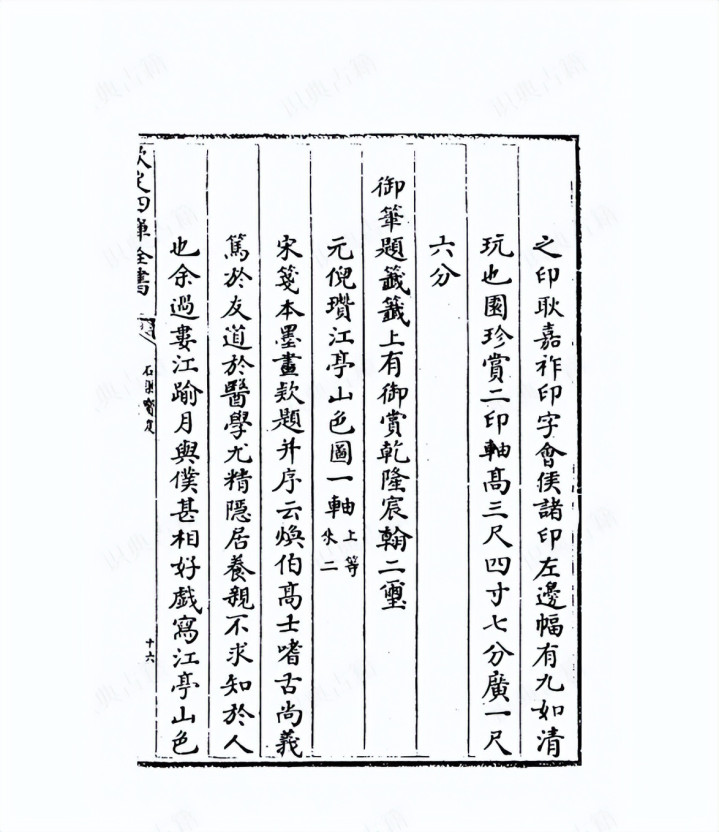 之印耿嘉祚印字會侯諸印左邊幅有九如清
玩也園珍賞二印軸髙三尺四寸七分廣一尺
六分
御筆題籤籤上有御賞乾隆宸翰二璽
元倪瓚江亭山色圖一軸上等
水二
宋箋本墨畫欵題并序云煥伯髙士嗜古尚義
篤於友道於醫學尤精隱居養親不求知於人
也余過婁江踰月與僕甚相好戲寫江亭山色
欽定四庫全書
石渠寶笈
十六